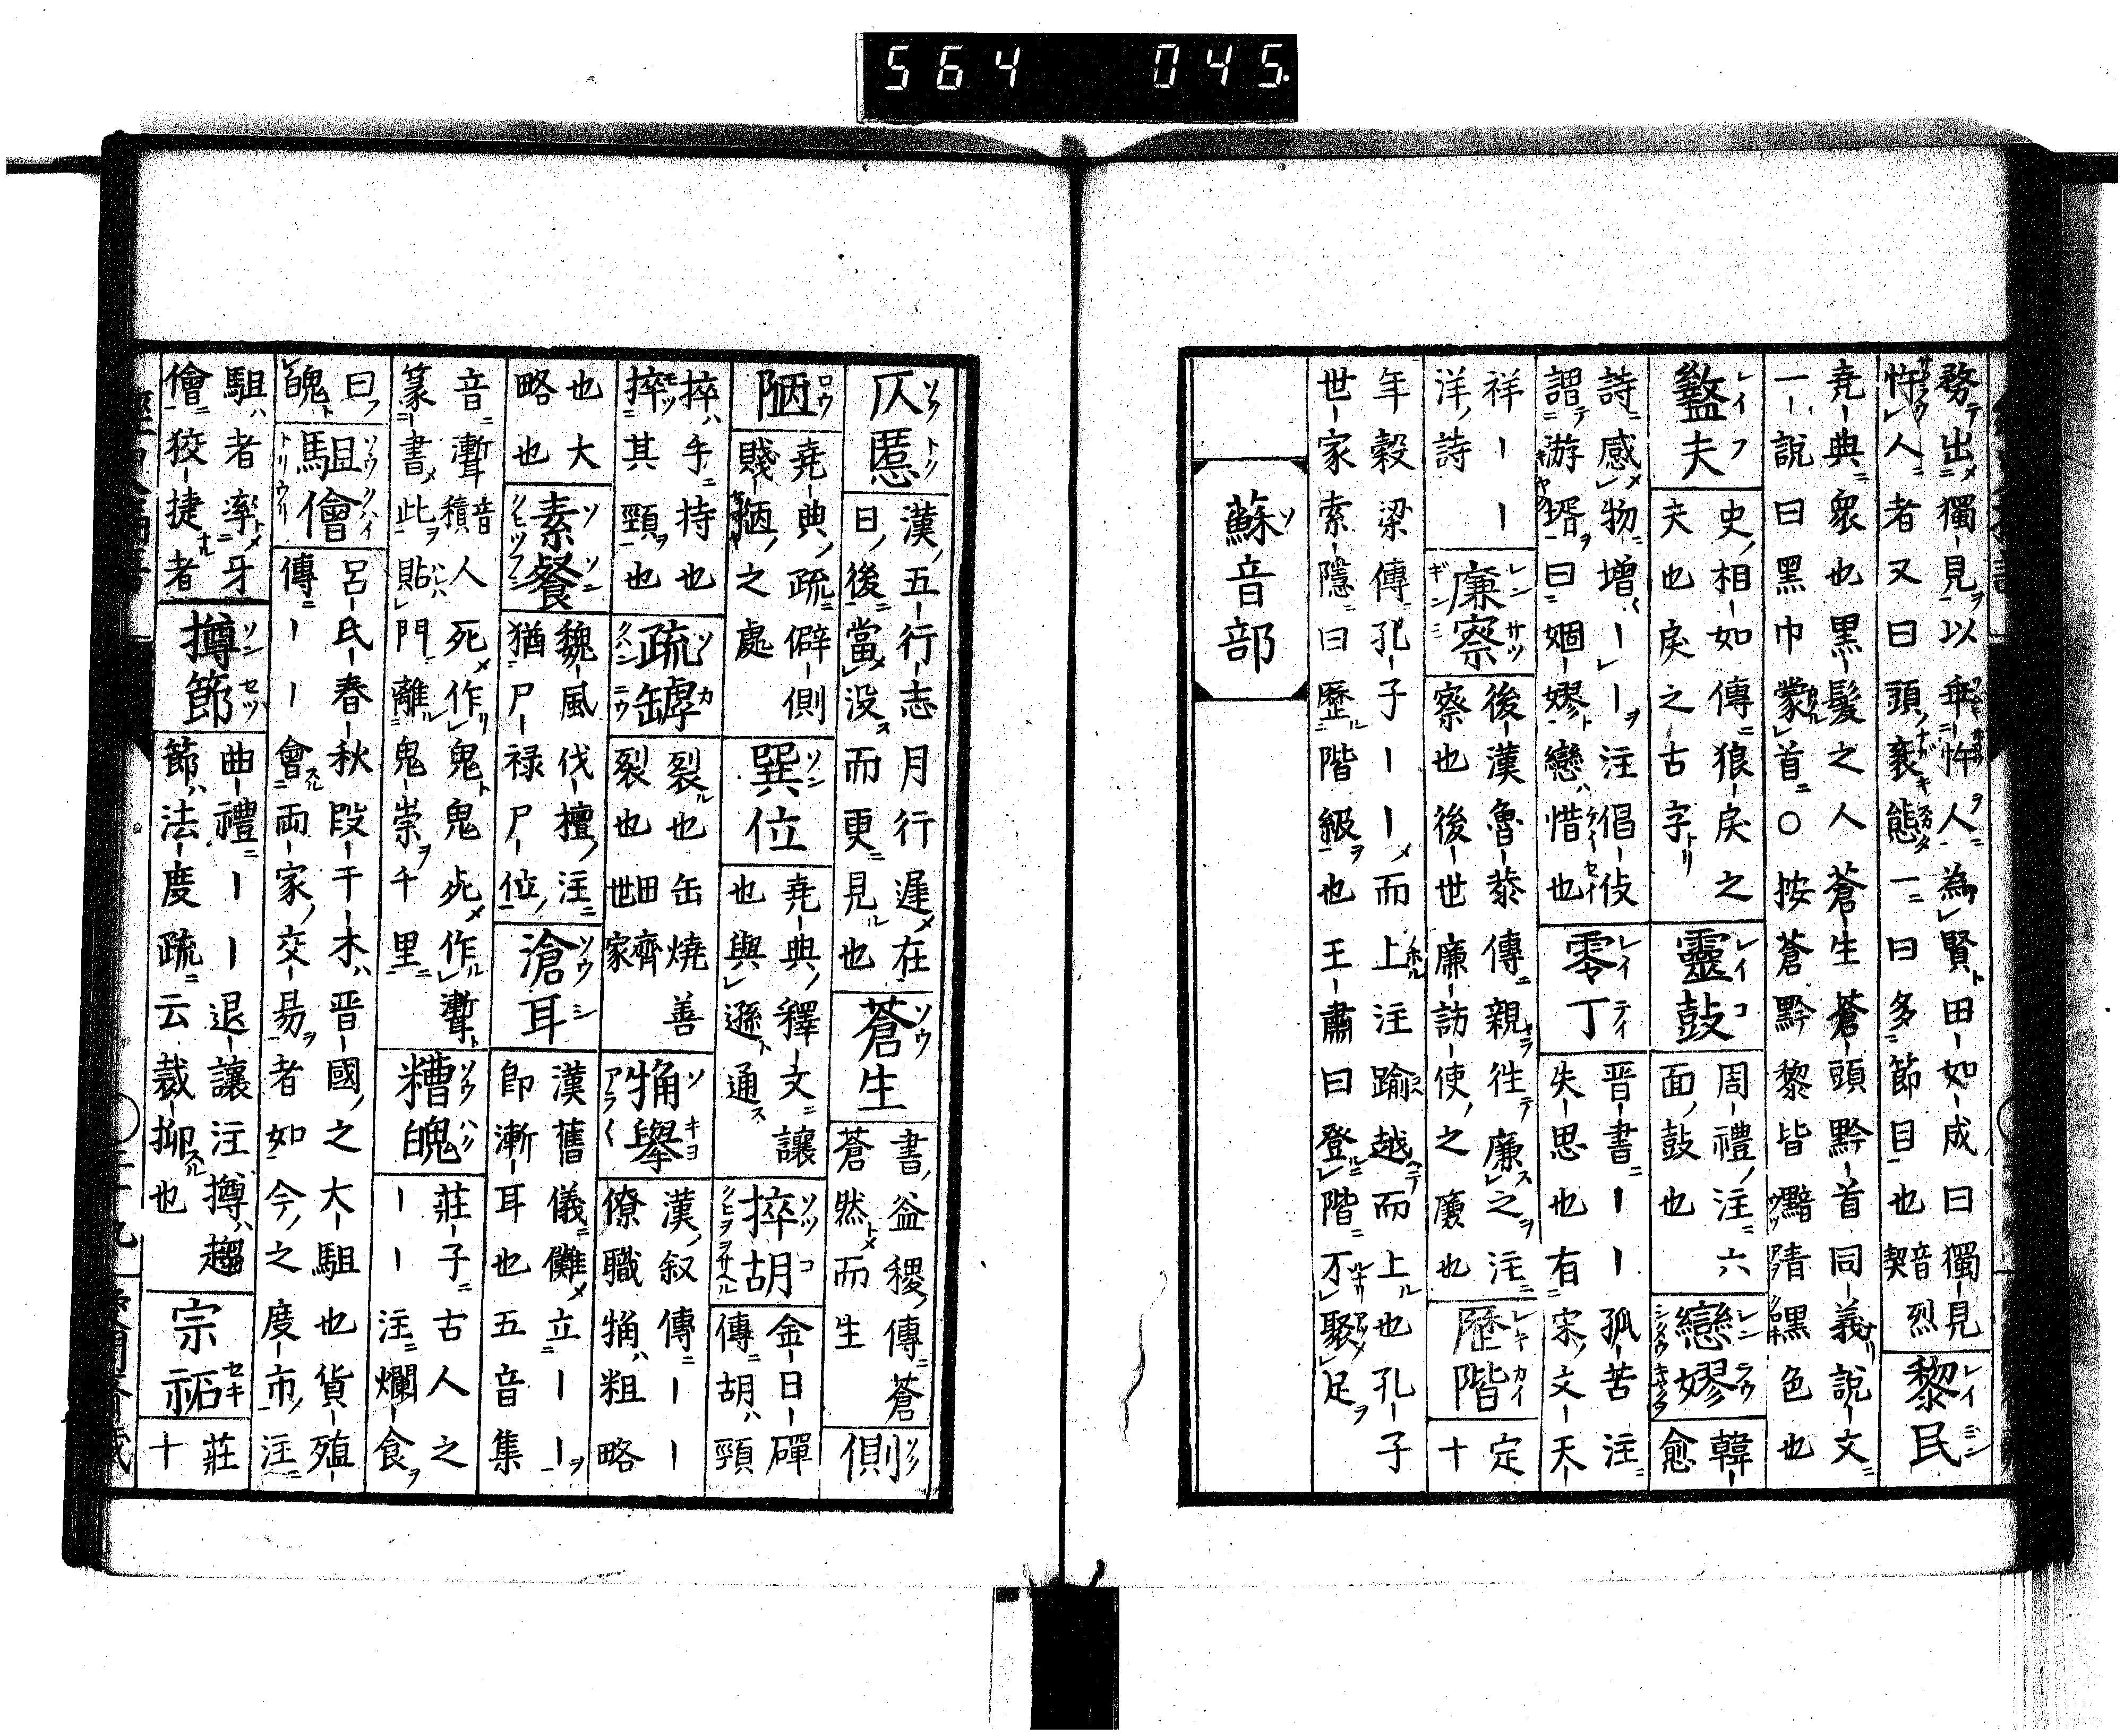 564 045.
務出獨見以垂忤人為賢田如成曰獨見
忤人者又曰頭袤態一曰多節目也音契烈
黎民
堯典衆也黒髮之人蒼生蒼頭黔首同義説文
一説曰黒巾蒙首○按蒼黔黎皆黯青黒色也
盭夫
史相如傳狼戾之
夫也戾之古字
靈鼓
周禮注六
面鼓也
戀嫪
韓
愈
詩感物增ーー注倡伎
謂游壻曰婟嫪戀惜也
零丁
晋書ーー孤苦注
失思也有宋文天
祥ーー
洋詩
廉察
後漢魯恭傳親往廉之注
察也後世廉訪使之廙也
歴階
定
十
年穀梁傳孔子ーー而上注踰越而上也孔子
世家索隱曰歴階級也王肅曰登階不聚足
蘇音部
仄慝
漢五行志月行遲在
日後當没而更見也
蒼生
書益稷傳蒼
蒼然而生
側
陋
堯典疏僻側
賤陋之處
巽位
堯典釋文讓
也與遜通
捽胡
金日磾
傳胡頸
捽手持也
捽其頸也
疏罅
裂也缶燒善
裂也田齊世家
觕擧
漢叙傳ーー
僚職觕粗略
也大
略也
素餐
魏風伐檀注
猶尸禄尸位
滄耳
漢舊儀儺立ーー
即漸耳也五音集
音聻音積人死作鬼鬼死作聻
篆書此貼門離鬼祟千里
糟魄
莊子古人之
ーー注爛食
曰
魄
駔儈
呂氏春秋段干木晋國之大駔也貨殖
傳ーー會両家交易者如今之度市注
駔者率牙
儈狡捷者
撙節
曲禮ーー退讓注撙趨
節法度疏云裁抑也
宗祏
莊
十